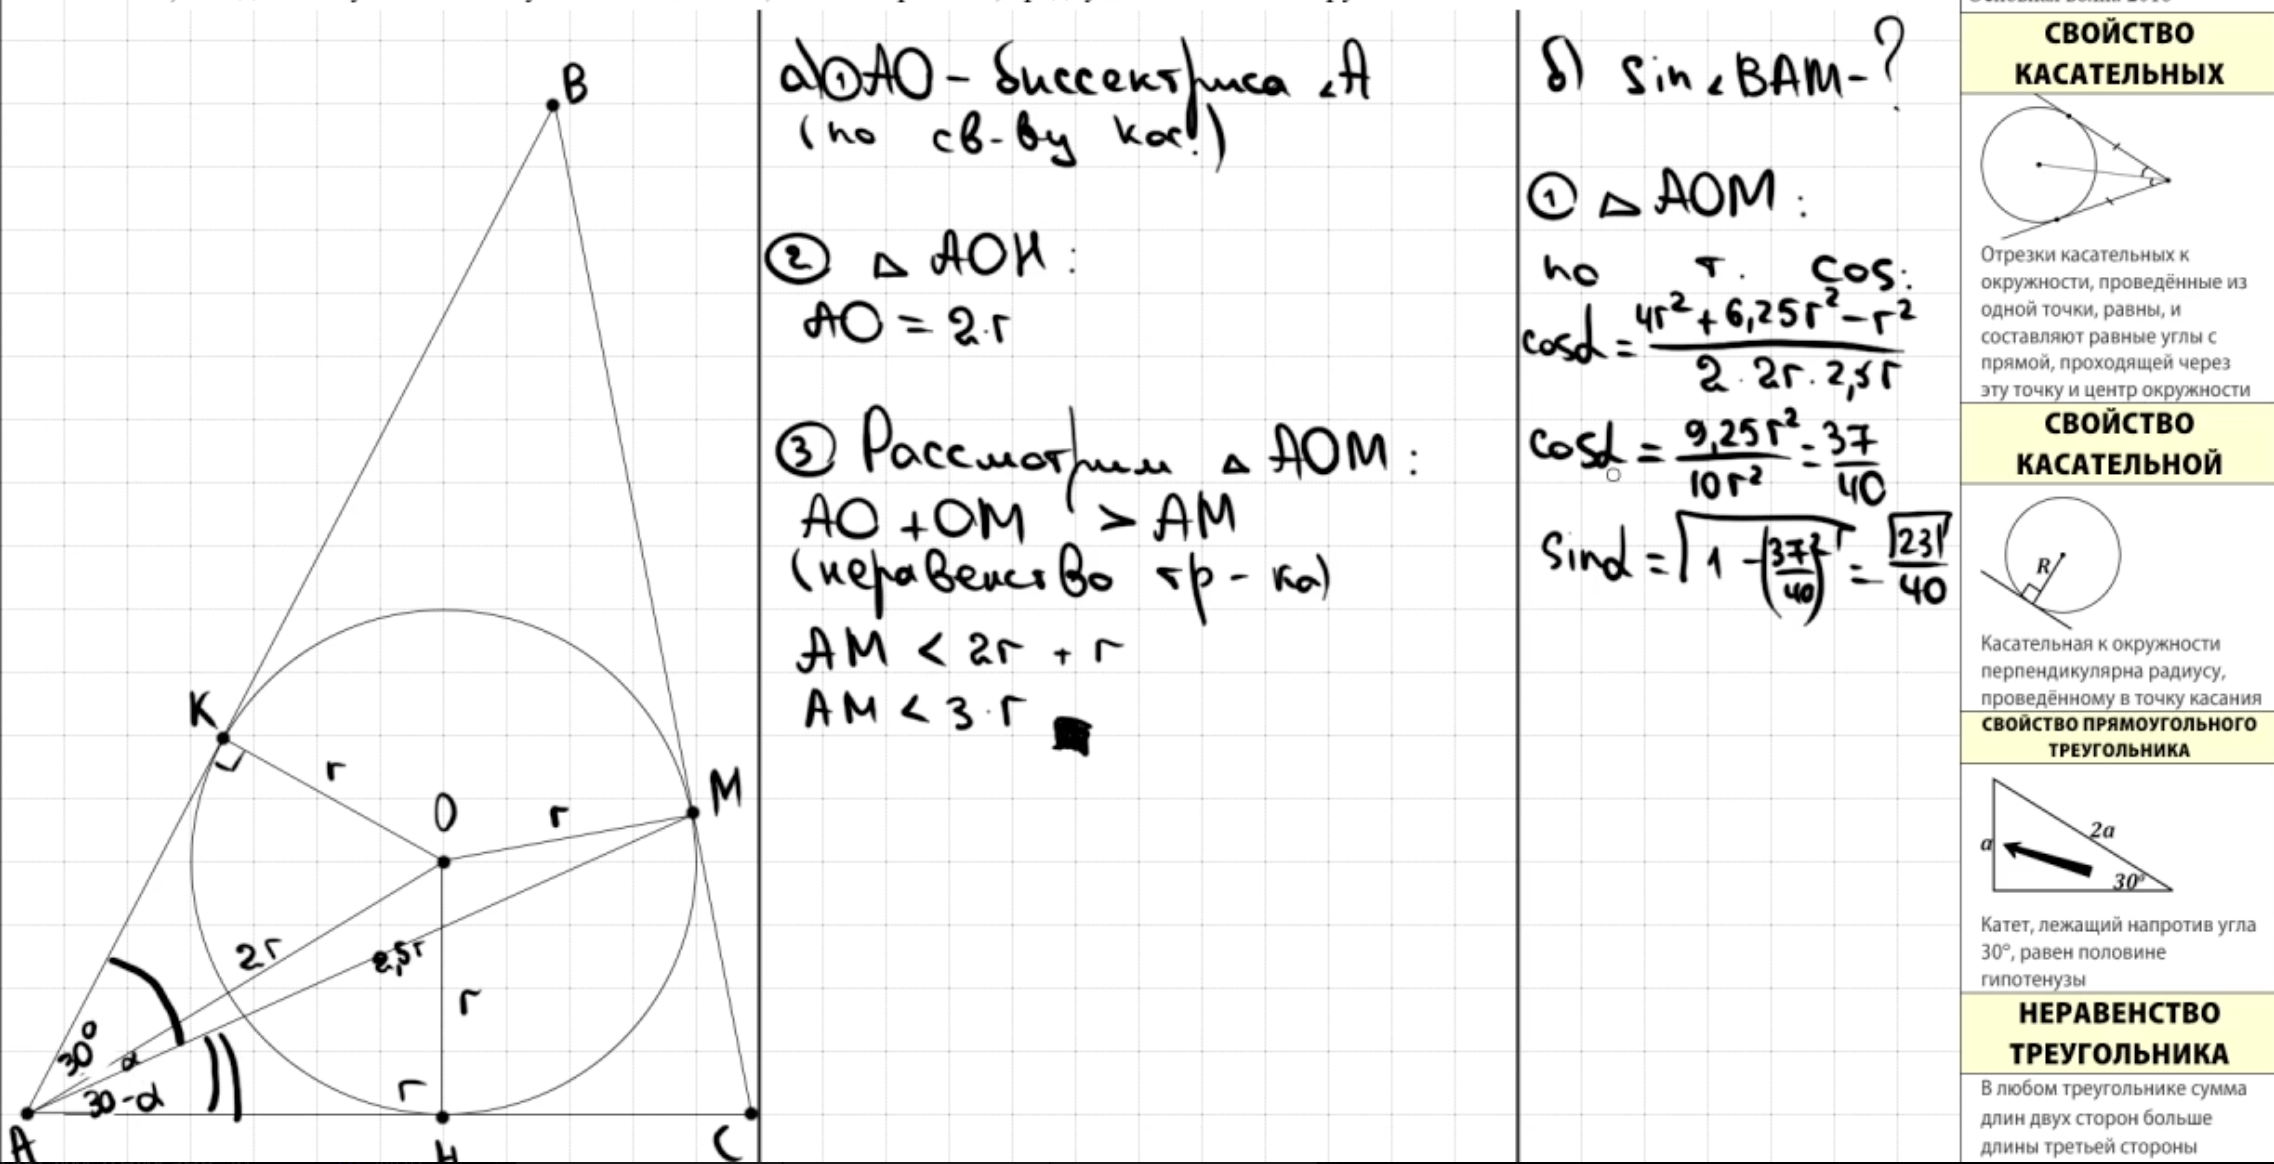 B
K
r
O
r
M
2r
2,5r
r
30°
α
30-α
r
A
H
C
а) ① AO - биссектриса ∠A
(по св-ву кас.)
② △ AOH:
AO = 2·r
③ Рассмотрим △ AOM:
AO + OM > AM
(неравенство тр-ка)
AM < 2r + r
AM < 3·r ■
б) sin∠BAM-?
① △ AOM:
по т. cos:
cosα = (4r² + 6,25r² - r²) / (2·2r·2,5r)
cosα = 9,25r²/10r² = 37/40
sinα = √(1 - (37/40)²) = √231/40
СВОЙСТВО
КАСАТЕЛЬНЫХ
Отрезки касательных к
окружности, проведённые из
одной точки, равны, и
составляют равные углы с
прямой, проходящей через
эту точку и центр окружности
СВОЙСТВО
КАСАТЕЛЬНОЙ
R
Касательная к окружности
перпендикулярна радиусу,
проведённому в точку касания
СВОЙСТВО ПРЯМОУГОЛЬНОГО
ТРЕУГОЛЬНИКА
2a
a
30°
Катет, лежащий напротив угла
30°, равен половине
гипотенузы
НЕРАВЕНСТВО
ТРЕУГОЛЬНИКА
В любом треугольнике сумма
длин двух сторон больше
длины третьей стороны